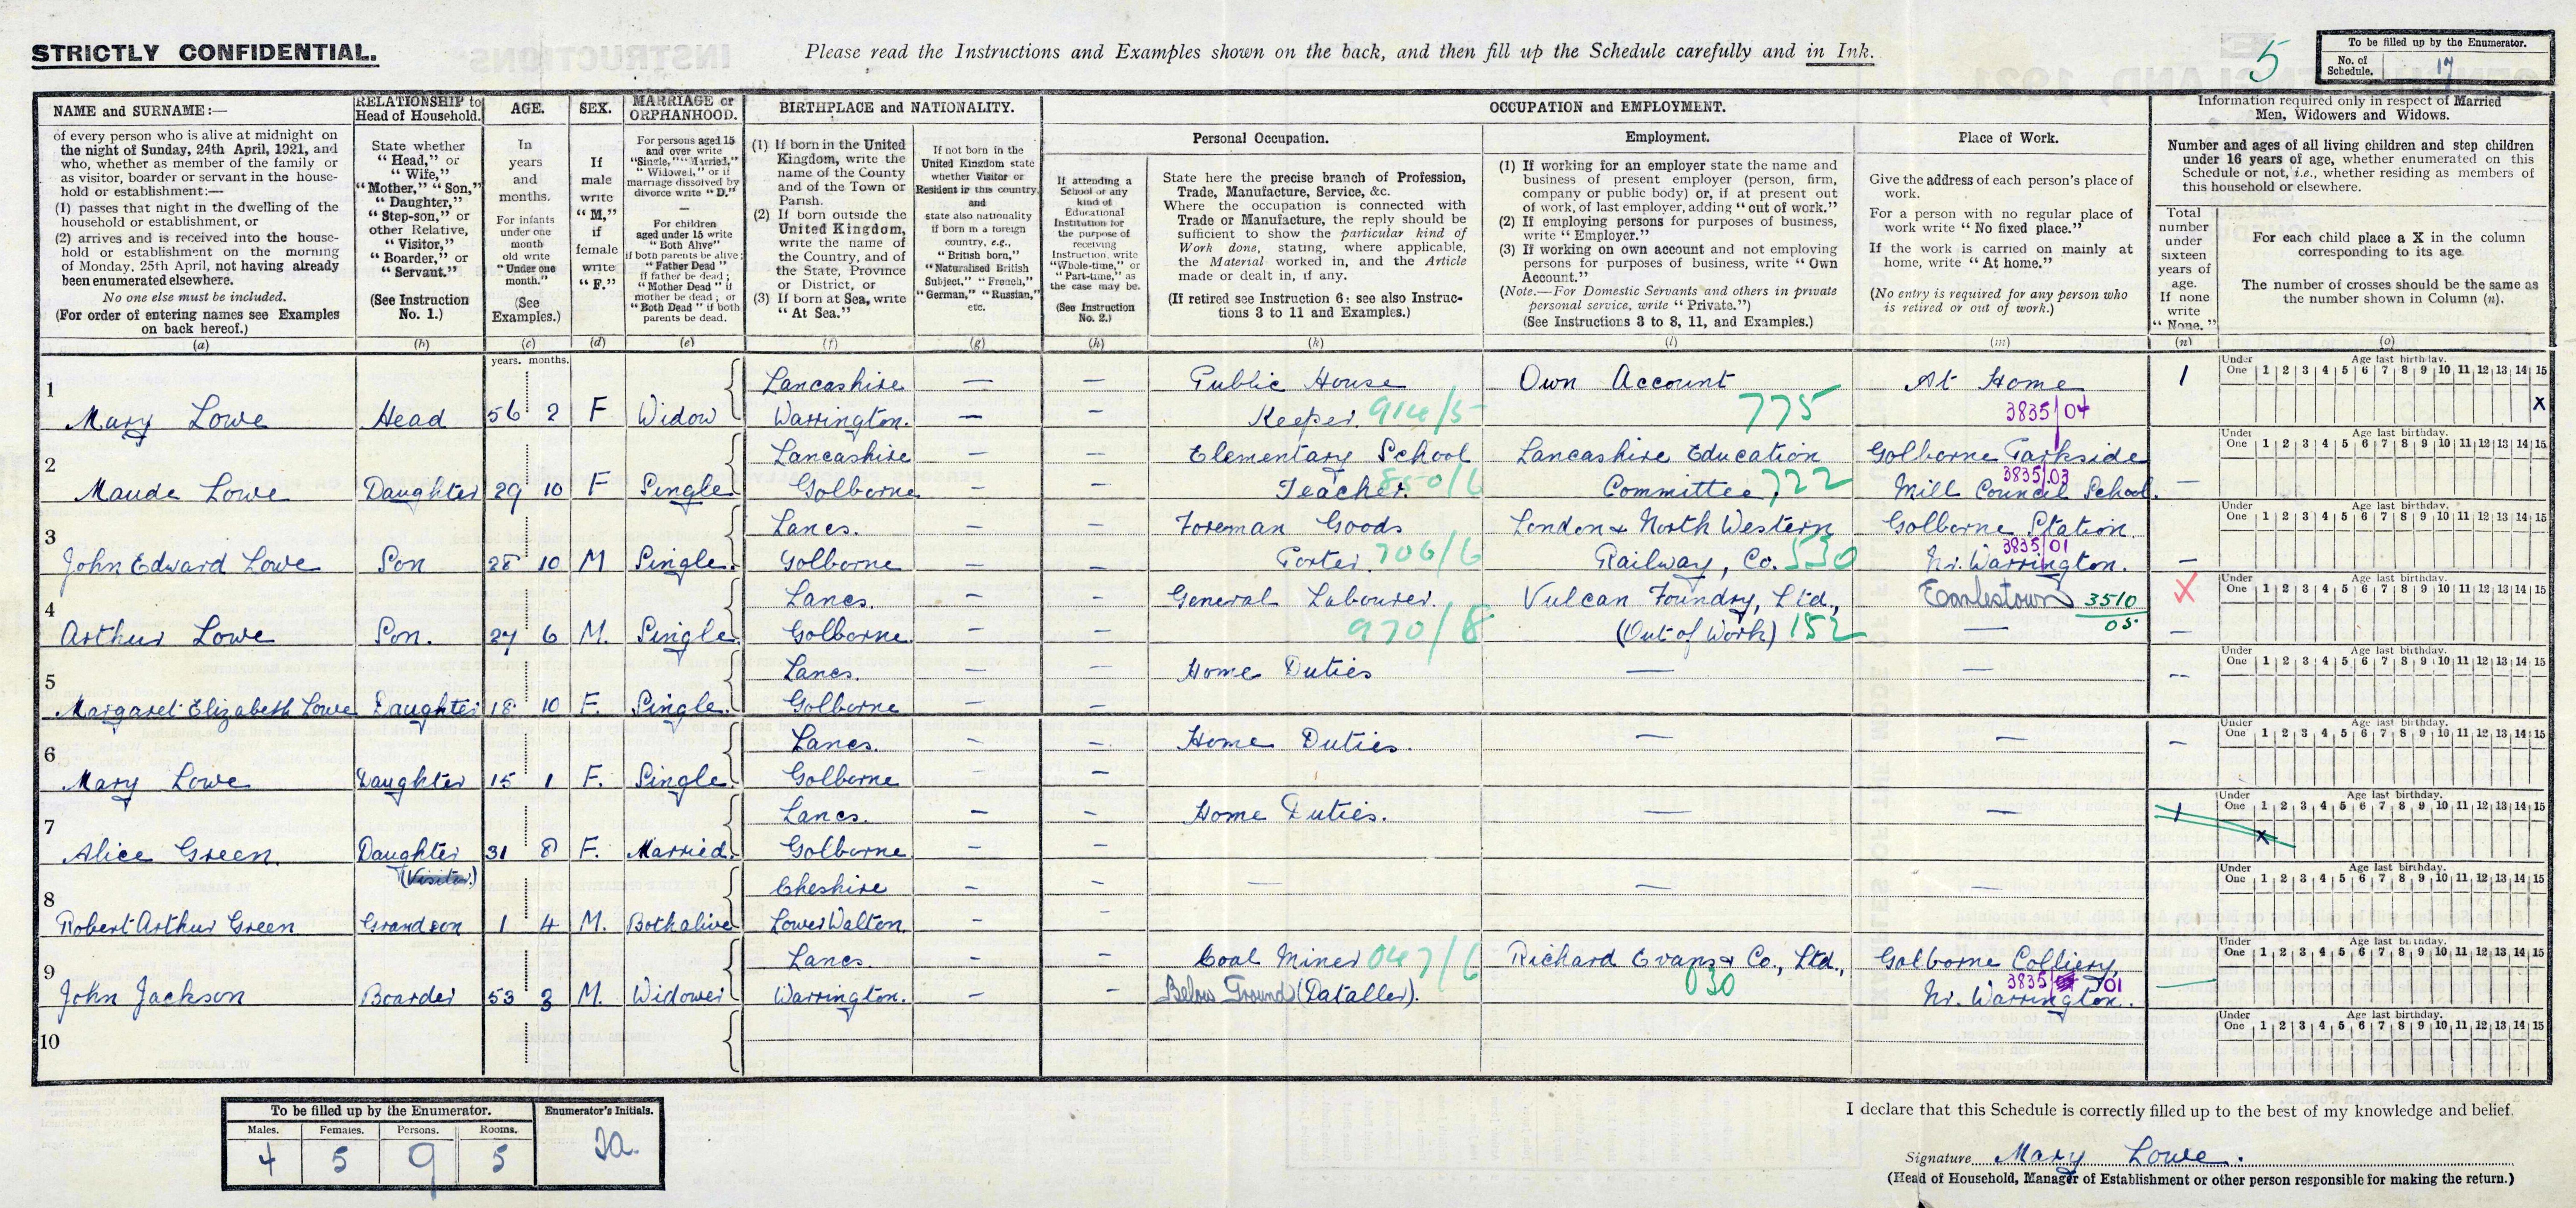 STRICTLY CONFIDENTIAL.
Please read the Instructions and Examples shown on the back, and then fill up the Schedule carefully and in Ink.
5
To be filled up by the Enumerator.
No. of Schedule. 17
NAME and SURNAME:—
of every person who is alive at midnight on
the night of Sunday, 24th April, 1921, and
who, whether as member of the family or
as visitor, boarder or servant in the house-
hold or establishment:—
(1) passes that night in the dwelling of the
household or establishment, or
(2) arrives and is received into the house-
hold or establishment on the morning
of Monday, 25th April, not having already
been enumerated elsewhere.
No one else must be included.
(For order of entering names see Examples
on back hereof.)
(a)
RELATIONSHIP to
Head of Household.
State whether
"Head," or
"Wife,"
"Mother," "Son,"
"Daughter,"
"Step-son," or
other Relative,
"Visitor,"
"Boarder," or
"Servant."
(See Instruction
No. 1.)
(b)
AGE.
In
years
and
months.
For infants
under one
month
old write
"Under one
month."
(See
Examples.)
(c)
SEX.
If
male
write
"M,"
if
female
write
"F."
(d)
MARRIAGE or
ORPHANHOOD.
For persons aged 15
and over write
"Single," "Married,"
"Widowed," or if
marriage dissolved by
divorce write "D."
—
For children
aged under 15 write
"Both Alive"
if both parents be alive;
"Father Dead"
if father be dead;
"Mother Dead" if
mother be dead; or
"Both Dead" if both
parents be dead.
(e)
BIRTHPLACE and NATIONALITY.
(1) If born in the United
Kingdom, write the
name of the County
and of the Town or
Parish.
(2) If born outside the
United Kingdom,
write the name of
the Country, and of
the State, Province
or District, or
(3) If born at Sea, write
"At Sea."
(f)
If not born in the
United Kingdom state
whether Visitor or
Resident in this country,
and
state also nationality
if born in a foreign
country, e.g.,
"British born,"
"Naturalised British
Subject," "French,"
"German," "Russian,"
etc.
(g)
OCCUPATION and EMPLOYMENT.
If attending a
School or any
kind of
Educational
Institution for
the purpose of
receiving
Instruction, write
"Whole-time," or
"Part-time," as
the case may be.
(See Instruction
No. 2.)
(h)
Personal Occupation.
State here the precise branch of Profession,
Trade, Manufacture, Service, &c.
Where the occupation is connected with
Trade or Manufacture, the reply should be
sufficient to show the particular kind of
Work done, stating, where applicable,
the Material worked in, and the Article
made or dealt in, if any.
(If retired see Instruction 6: see also Instruc-
tions 3 to 11 and Examples.)
(k)
Employment.
(1) If working for an employer state the name and
business of present employer (person, firm,
company or public body) or, if at present out
of work, of last employer, adding "out of work."
(2) If employing persons for purposes of business,
write "Employer."
(3) If working on own account and not employing
persons for purposes of business, write "Own
Account."
(Note.—For Domestic Servants and others in private
personal service, write "Private.")
(See Instructions 3 to 8, 11, and Examples.)
(l)
Place of Work.
Give the address of each person's place of
work.
For a person with no regular place of
work write "No fixed place."
If the work is carried on mainly at
home, write "At home."
(No entry is required for any person who
is retired or out of work.)
(m)
Information required only in respect of Married
Men, Widowers and Widows.
Number and ages of all living children and step children
under 16 years of age, whether enumerated on this
Schedule or not, i.e., whether residing as members of
this household or elsewhere.
Total
number
under
sixteen
years of
age.
If none
write
"None."
(n)
For each child place a X in the column
corresponding to its age.
The number of crosses should be the same as
the number shown in Column (n).
(o)
years. months.
Under One Age last birthday. 1 2 3 4 5 6 7 8 9 10 11 12 13 14 15
1 Lancashire — — Public House Own Account At Home 1
Mary Lowe Head 56 2 F Widow Warrington. — — Keeper. 914/5 775 3835/04 x
Under One Age last birthday. 1 2 3 4 5 6 7 8 9 10 11 12 13 14 15
2 Lancashire — — Elementary School Lancashire Education Golborne Parkside
Maude Lowe Daughter 29 10 F Single Golborne — — Teacher. 850/6 Committee, 722 3835/03 Mill Council School. —
Under One Age last birthday. 1 2 3 4 5 6 7 8 9 10 11 12 13 14 15
3 Lancs. — — Foreman Goods London & North Western Golborne Station.
John Edward Lowe Son 28 10 M Single. Golborne — — Porter. 706/6 Railway, Co. 530 3835/01 Nr. Warrington. —
Under One Age last birthday. 1 2 3 4 5 6 7 8 9 10 11 12 13 14 15
4 Lancs. — — General Labourer. Vulcan Foundry, Ltd., Earlestown 3510/05 X
Arthur Lowe Son. 27 6 M. Single. Golborne. — — 970/8 (Out of Work) 152 — —
Under One Age last birthday. 1 2 3 4 5 6 7 8 9 10 11 12 13 14 15
5 Lancs. — — Home Duties — — —
Margaret Elizabeth Lowe Daughter 18 10 F. Single. Golborne — —
Under One Age last birthday. 1 2 3 4 5 6 7 8 9 10 11 12 13 14 15
6 Lancs. — — Home Duties. — — —
Mary Lowe Daughter 15 1 F. Single. Golborne — —
Under One Age last birthday. 1 2 3 4 5 6 7 8 9 10 11 12 13 14 15
7 Lancs. — — Home Duties. — — 1
Alice Green. Daughter 31 8 F. Married. Golborne — — x
(Visitor.)
Under One Age last birthday. 1 2 3 4 5 6 7 8 9 10 11 12 13 14 15
8 Cheshire — — — — —
Robert Arthur Green Grandson 1 4 M. Both alive Lower Walton. — —
Under One Age last birthday. 1 2 3 4 5 6 7 8 9 10 11 12 13 14 15
9 Lancs. — — Coal Miner 047/6 Richard Evans & Co., Ltd., Golborne Colliery,
John Jackson Boarder 53 3 M. Widower Warrington. — — Below Ground (Dataller). 030 3835/01 Nr. Warrington. —
Under One Age last birthday. 1 2 3 4 5 6 7 8 9 10 11 12 13 14 15
10
To be filled up by the Enumerator.
Enumerator's Initials.
Males. Females. Persons. Rooms.
4 5 9 5
I declare that this Schedule is correctly filled up to the best of my knowledge and belief.
Signature Mary Lowe.
(Head of Household, Manager of Establishment or other person responsible for making the return.)